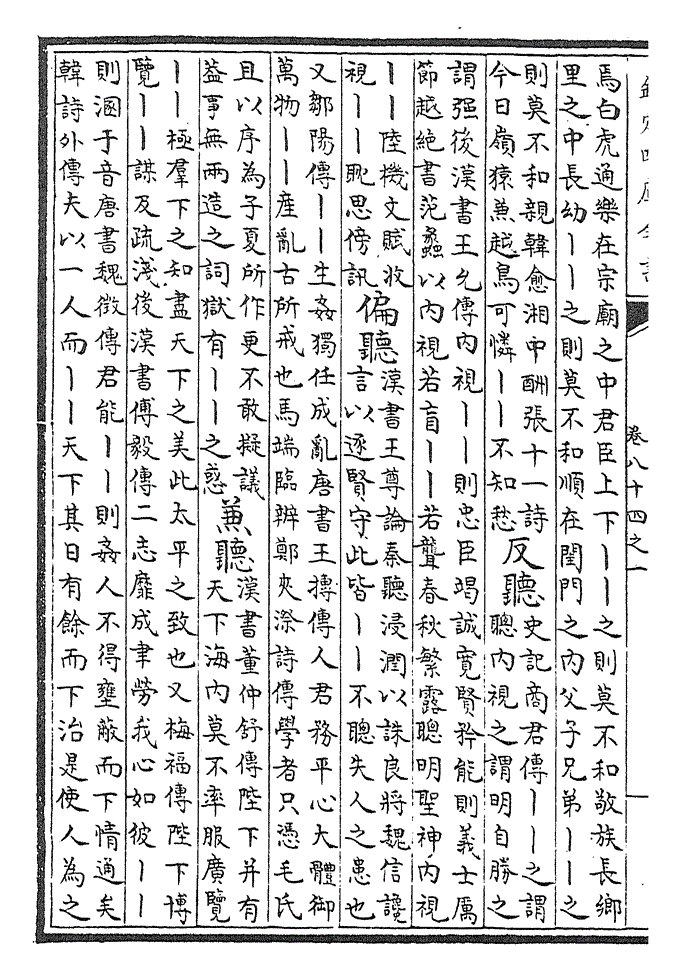 欽定四庫全書
卷八十四之一
焉白虎通樂在宗廟之中君臣上下丨丨之則莫不和敬族長鄉
里之中長幼丨丨之則莫不和順在閨門之内父子兄弟丨丨之
則莫不和親韓愈湘中酬張十一詩
今日嶺猿兼越鳥可憐丨丨不知愁
反聽
史記商君傳丨丨之謂
聰内視之謂明自勝之
謂强後漢書王允傳内視丨丨則忠臣竭誠寛賢矜能則義士厲
節越絶書范蠡以内視若盲丨丨若聾春秋繁露聰明聖神内視
丨丨陸機文賦收
視丨丨耽思傍訊
偏聽
漢書王尊論秦聽浸潤以誅良將魏信讒
言以逐賢守此皆丨丨不聰失人之患也
又鄒陽傳丨丨生姦獨任成亂唐書王摶傳人君務平心大體御
萬物丨丨産亂古所戒也馬端臨辨鄭夾漈詩傳學者只憑毛氏
且以序為子夏所作更不敢擬議
益事無兩造之詞獄有丨丨之惑
兼聽
漢書董仲舒傳陛下并有
天下海内莫不率服廣覽
丨丨極羣下之知盡天下之美此太平之致也又梅福傳陛下博
覽丨丨謀及疏淺後漢書傅毅傳二志靡成聿勞我心如彼丨丨
則溷于音唐書魏徵傳君能丨丨則姦人不得壅蔽而下情通矣
韓詩外傳夫以一人而丨丨天下其日有餘而下治是使人為之